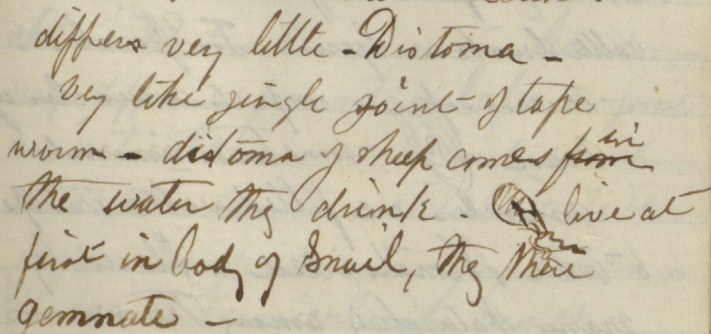 differs very little - Distoma -
Very like single joint of tape
worm - distoma of sheep comes in
the water they drink. live at
first in body of Snail, they there
gemmate -